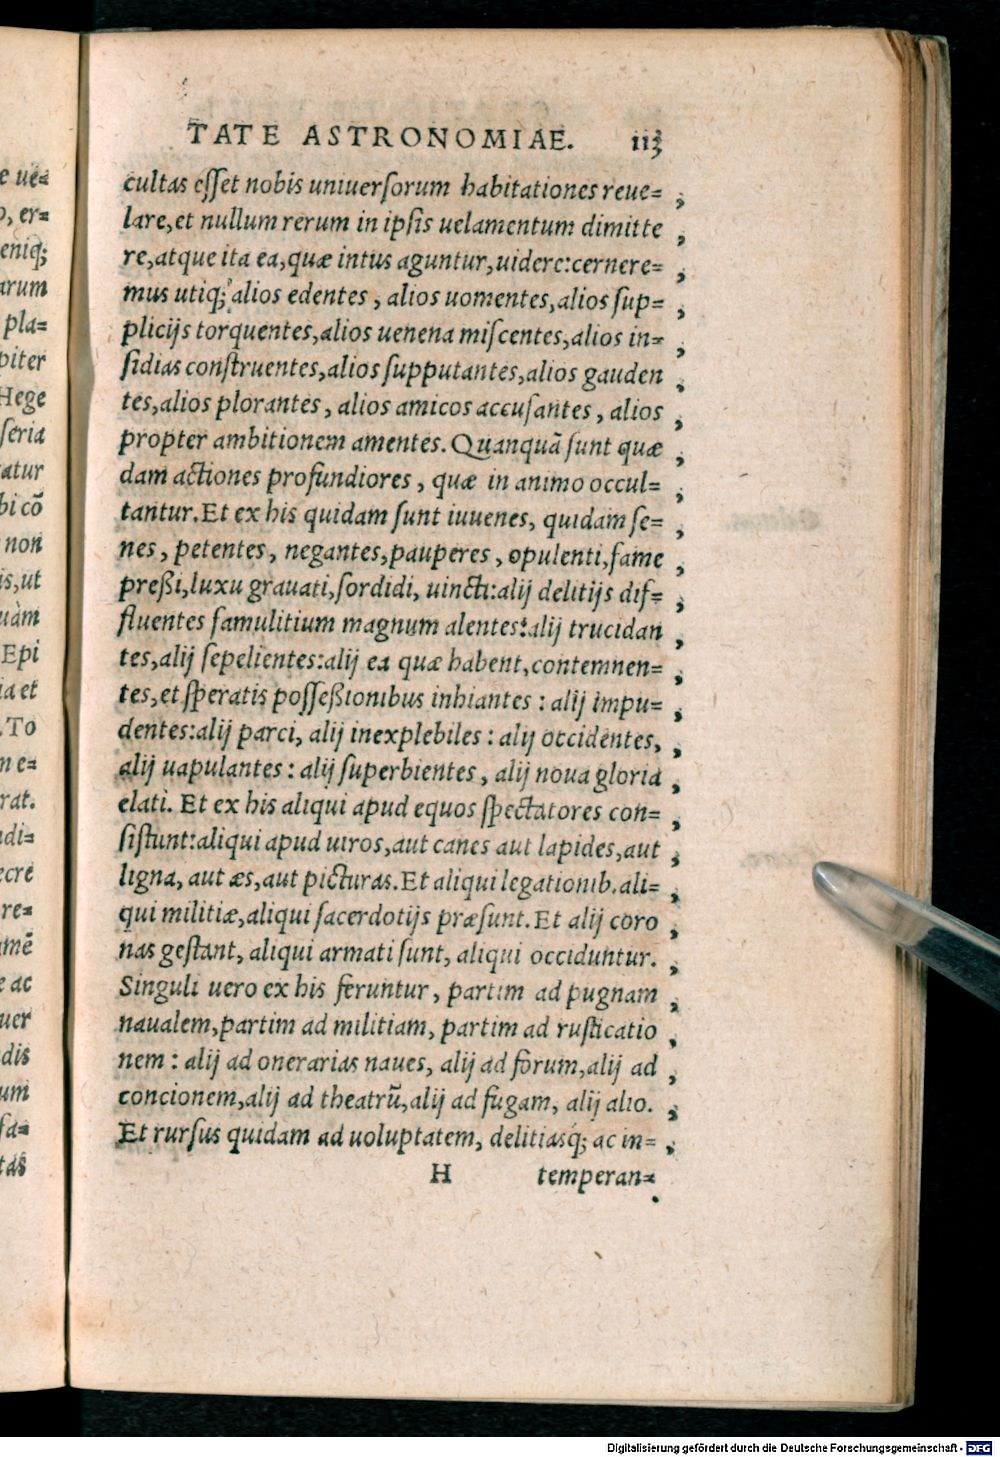 TATE ASTRONOMIAE. 113
cultas eſſet nobis uniuerſorum habitationes reue= ,
lare,et nullum rerum in ipſis uelamentum dimitte ,
re,atque ita ea,quæ intus aguntur,uidere:cernere= ,
mus utiq; alios edentes, alios uomentes,alios ſup= ,
plicijs torquentes,alios uenena miſcentes,alios in= ,
ſidias conſtruentes,alios ſupputantes,alios gauden ,
tes,alios plorantes, alios amicos accuſantes, alios ,
propter ambitionem amentes. Quanquã ſunt quæ ,
dam actiones profundiores, quæ in animo occul= ,
tantur.Et ex his quidam ſunt iuuenes, quidam ſe= ,
nes, petentes, negantes,pauperes, opulenti,fame ,
preßi,luxu grauati,ſordidi, uincti:alij delitijs dif= ,
fluentes famulitium magnum alentes:alij trucidan ,
tes,alij ſepelientes:alij ea quæ habent,contemnen= ,
tes,et ſperatis poſſeßionibus inhiantes : alij impu= ,
dentes:alij parci, alij inexplebiles : alij occidentes, ,
alij uapulantes : alij ſuperbientes, alij noua gloria ,
elati. Et ex his aliqui apud equos ſpectatores con= ,
ſiſtunt:aliqui apud uiros,aut canes aut lapides,aut ,
ligna, aut æs,aut picturas.Et aliqui legationib.ali= ,
qui militiæ,aliqui ſacerdotijs præſunt.Et alij coro ,
nas geſtant, aliqui armati ſunt, aliqui occiduntur. ,
Singuli uero ex his feruntur, partim ad pugnam ,
naualem,partim ad militiam, partim ad ruſticatio ,
nem : alij ad onerarias naues, alij ad forum,alij ad ,
concionem,alij ad theatrũ,alij ad fugam, alij alio. ,
Et rurſus quidam ad uoluptatem, delitiasq; ac in= ,
H temperan=
e ue=
o, er=
eniq;
arum
pla=
piter
Hege
ſeria
atur
bi cõ
non
is,ut
uàm
Epi
ia et
.To
m e=
rat.
udi=
ecre
re=
mẽ
e ac
uer
dis
um
fa=
tas
Digitalisierung gefördert durch die Deutsche Forschungsgemeinschaft - DFG